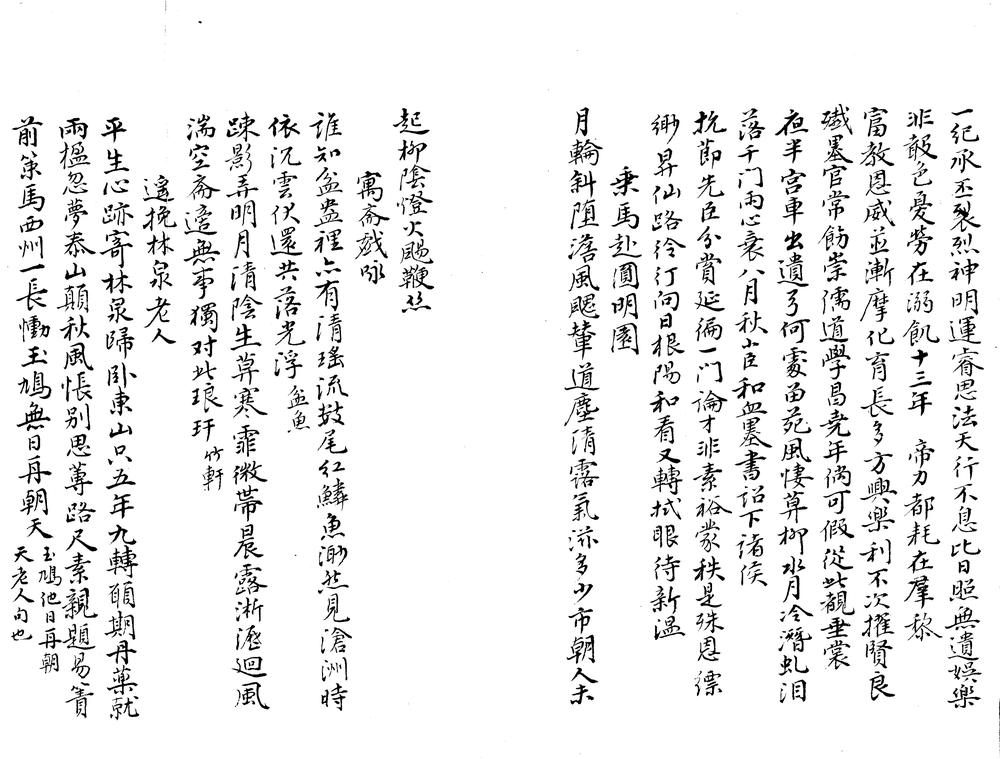 一紀承丕裂烈神明運睿思法天行不息比日照無遺娛樂
非殽色憂勞在溺飢十三年　帝力都耗在羣黎
富教恩威並漸摩化育長多方興樂利不次擢賢良
殲墨官常飭崇儒道學昌堯年倘可假從此覩垂裳
夜半宮車出遺弓何處留苑風悽草柳水月冷潛虬泪
落千門雨心衰八月秋小臣和血墨書詔下諸侯
抗節先臣分賞延徧一門論才非素裕蒙秩是殊恩縹
緲昇仙路伶仃向日根陽和看又轉拭眼待新溫
乘馬赴圓明園
月輪斜墮澹風颸輦道塵清露氣滋多少市朝人未
起柳陰燈火颺鞭絲
寓齋戲咏
誰知盆盎裡亦有清瑤流鼓尾紅鱗魚渺然見滄洲時
依沉雲伏還共落光浮 盆魚
踈影弄明月清陰生草寒霏微帶晨露淅瀝迴風
湍空齋適無事獨对此琅玕 竹軒
遙挽林泉老人
平生心跡寄林泉歸卧東山只五年九轉頤期丹藥就
兩楹忽夢泰山顛秋風悵别思蓴路尺素親題易簀
前策馬西州一長慟玉鳩無日再朝天 玉鳩他日再朝
天老人句也